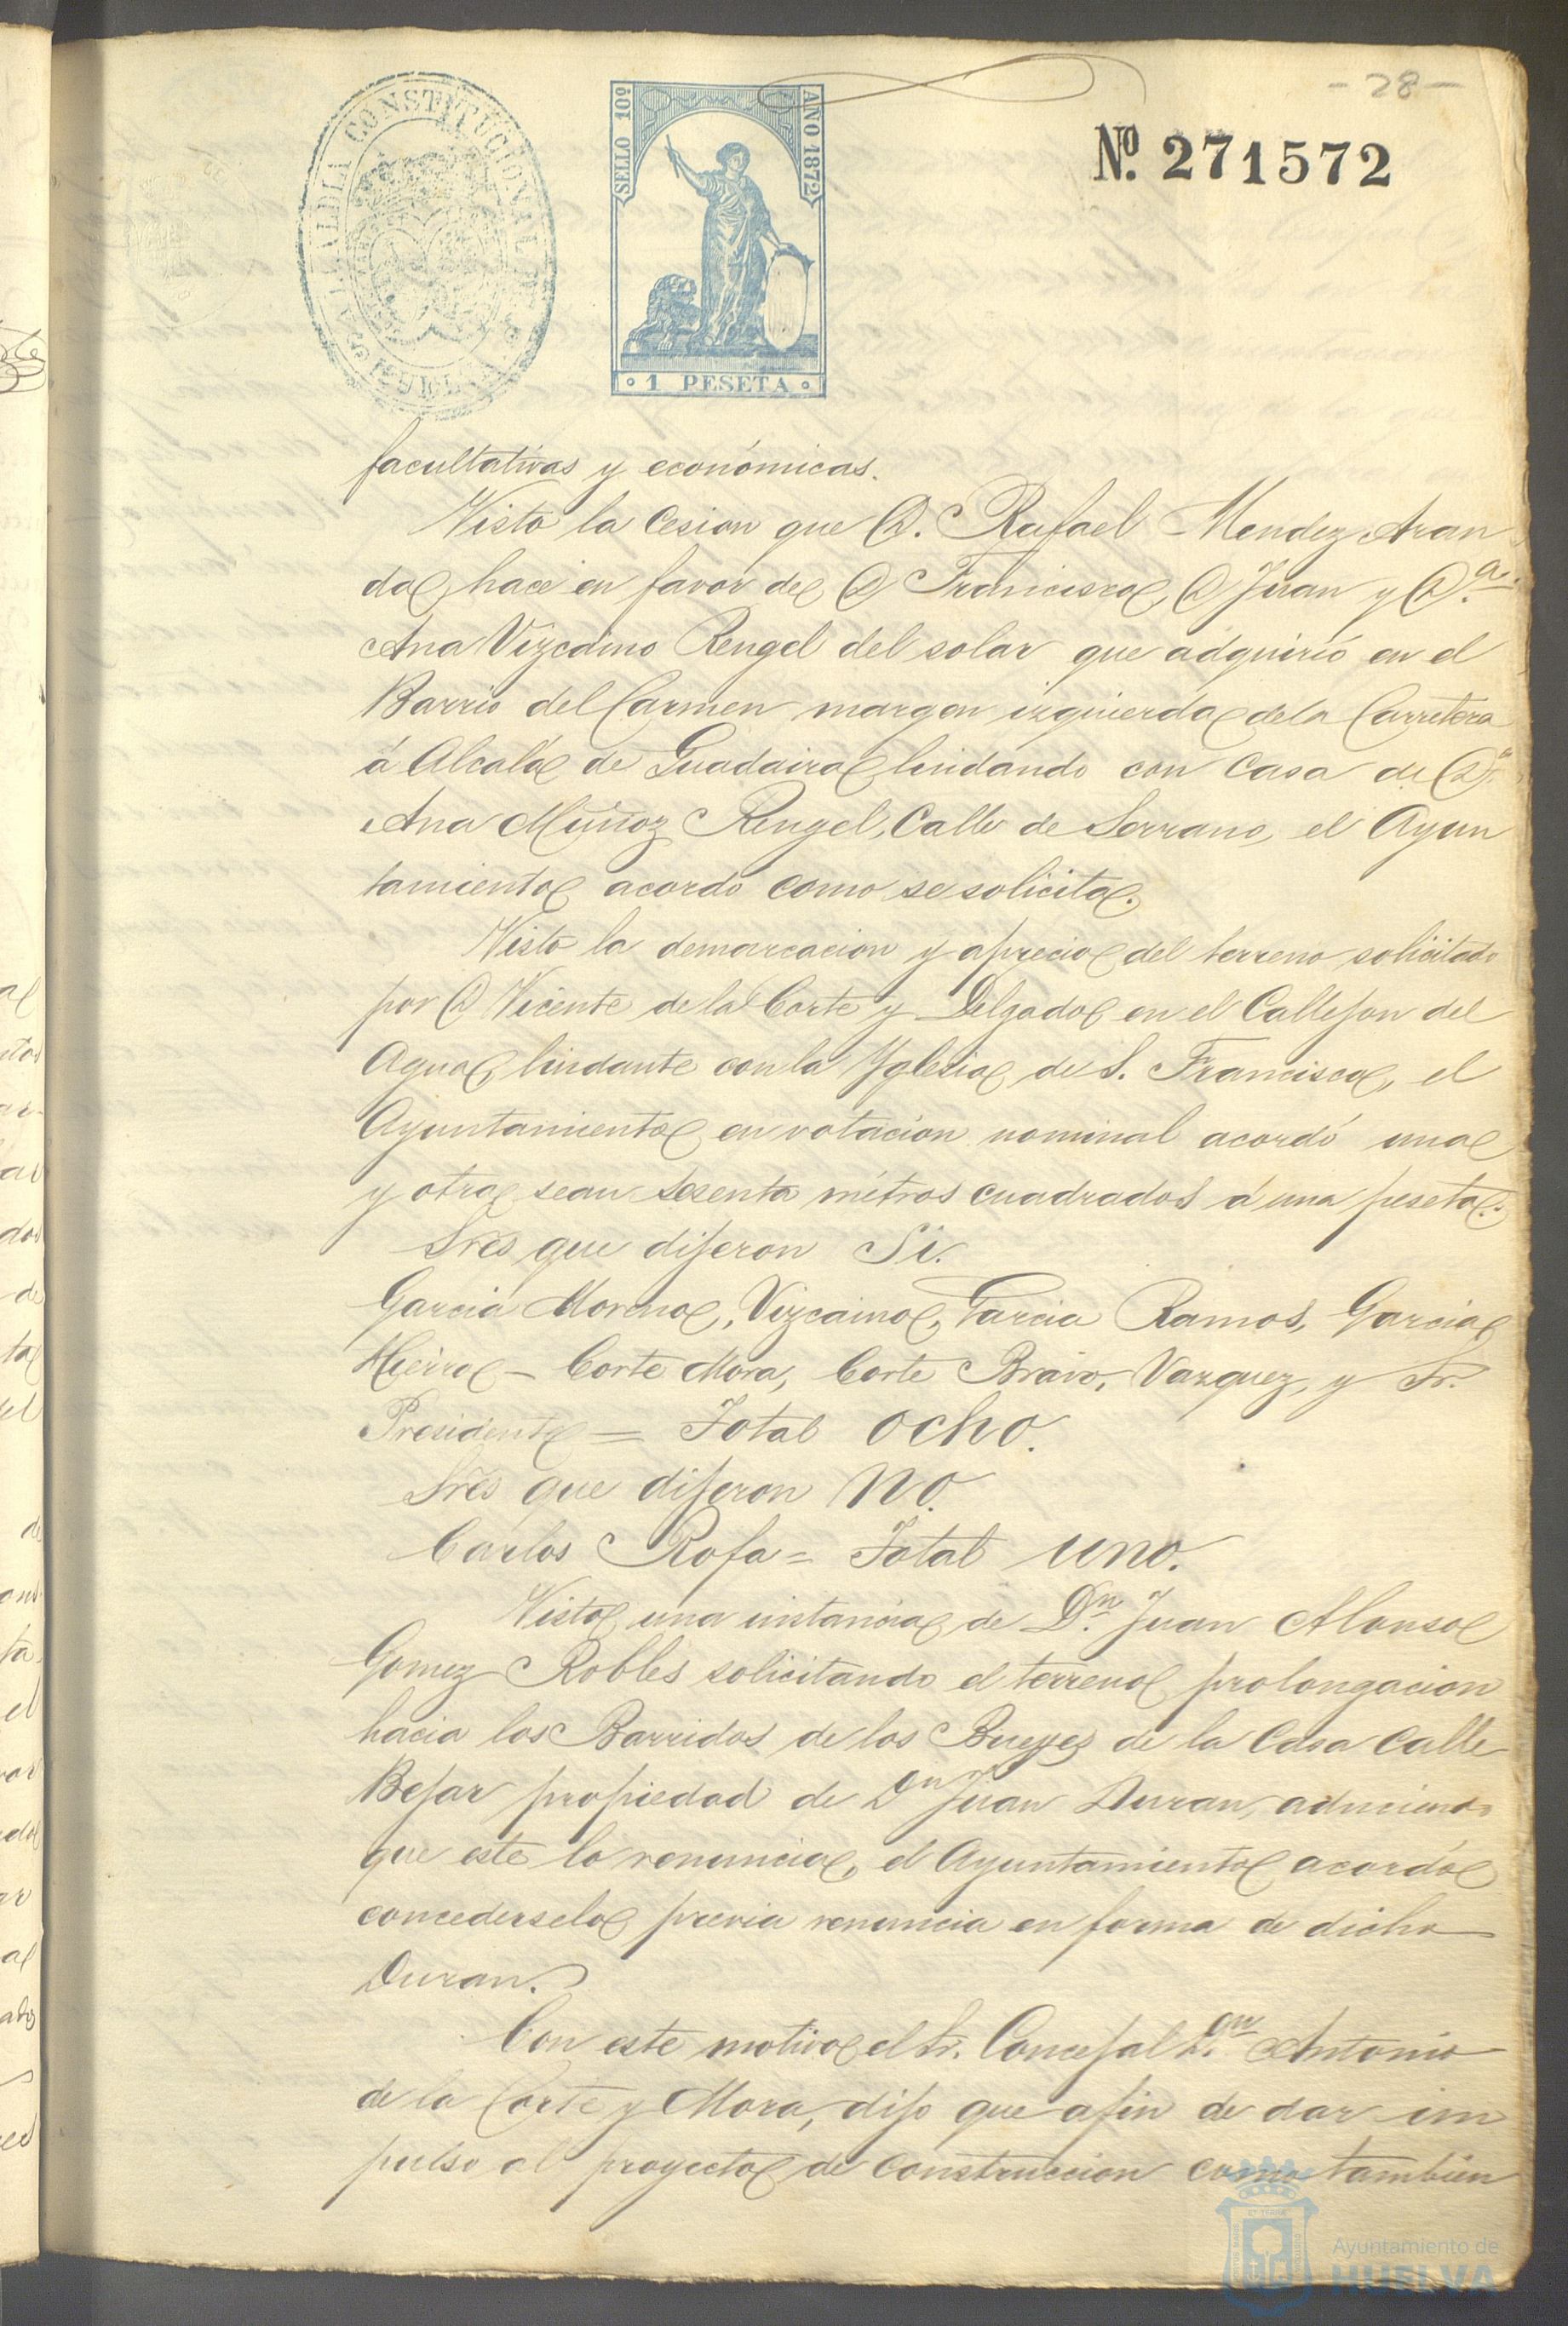 - 28 -
ALCALDIA CONSTITUCIONAL DE HUELVA
SELLO 10º
AÑO 1872
1 PESETA
Nº. 271572
facultativas y económicas.
Visto la Cesion que D. Rafael Mendez Aran
da, hace en favor de D Francisco, D Juan y D.ª
Ana Vizcaino Rengel del solar que adquirió en el
Barrio del Carmen margen izquierda de la Carretera
á Alcalá de Guadaira lindando con Casa de D.ª
Ana Muñoz Rengel, Calle de Serrano, el Ayun
tamiento acordó como se solicita.
Visto la demarcacion y aprecio del terreno solicitado
por D Vicente de la Corte y Delgado en el Callejon del
Agua, lindante con la Yglesia de S. Francisco, el
Ayuntamiento en votacion nominal acordó una
y otra sean sesenta métros cuadrados á una peseta.
Sres que dijeron Si.
Garcia Moreno, Vizcaino, Garcia Ramos, Garcia
Hierro - Corte Mora, Corte Bravo, Vazquez, y Sr.
Presidente = Total ocho.
Sres que dijeron No.
Carlos Rofa = Total uno.
Visto una instancia de Dn. Juan Alonso
Gomez Robles solicitando el terreno prolongacion
hacia los Barridos de los Bueyes de la Casa Calle
Bejar propiedad de Dn Juan Duran, aduciendo
que este lo renuncia, el Ayuntamiento acordó
concederselo previa renuncia en forma de dicho
Duran.
Con este motivo el Sr. Concejal Dn. Antonio
de la Corte y Mora, dijo que afin de dar im
pulso al proyecto de construccion como tambien
Ayuntamiento de
HUELVA